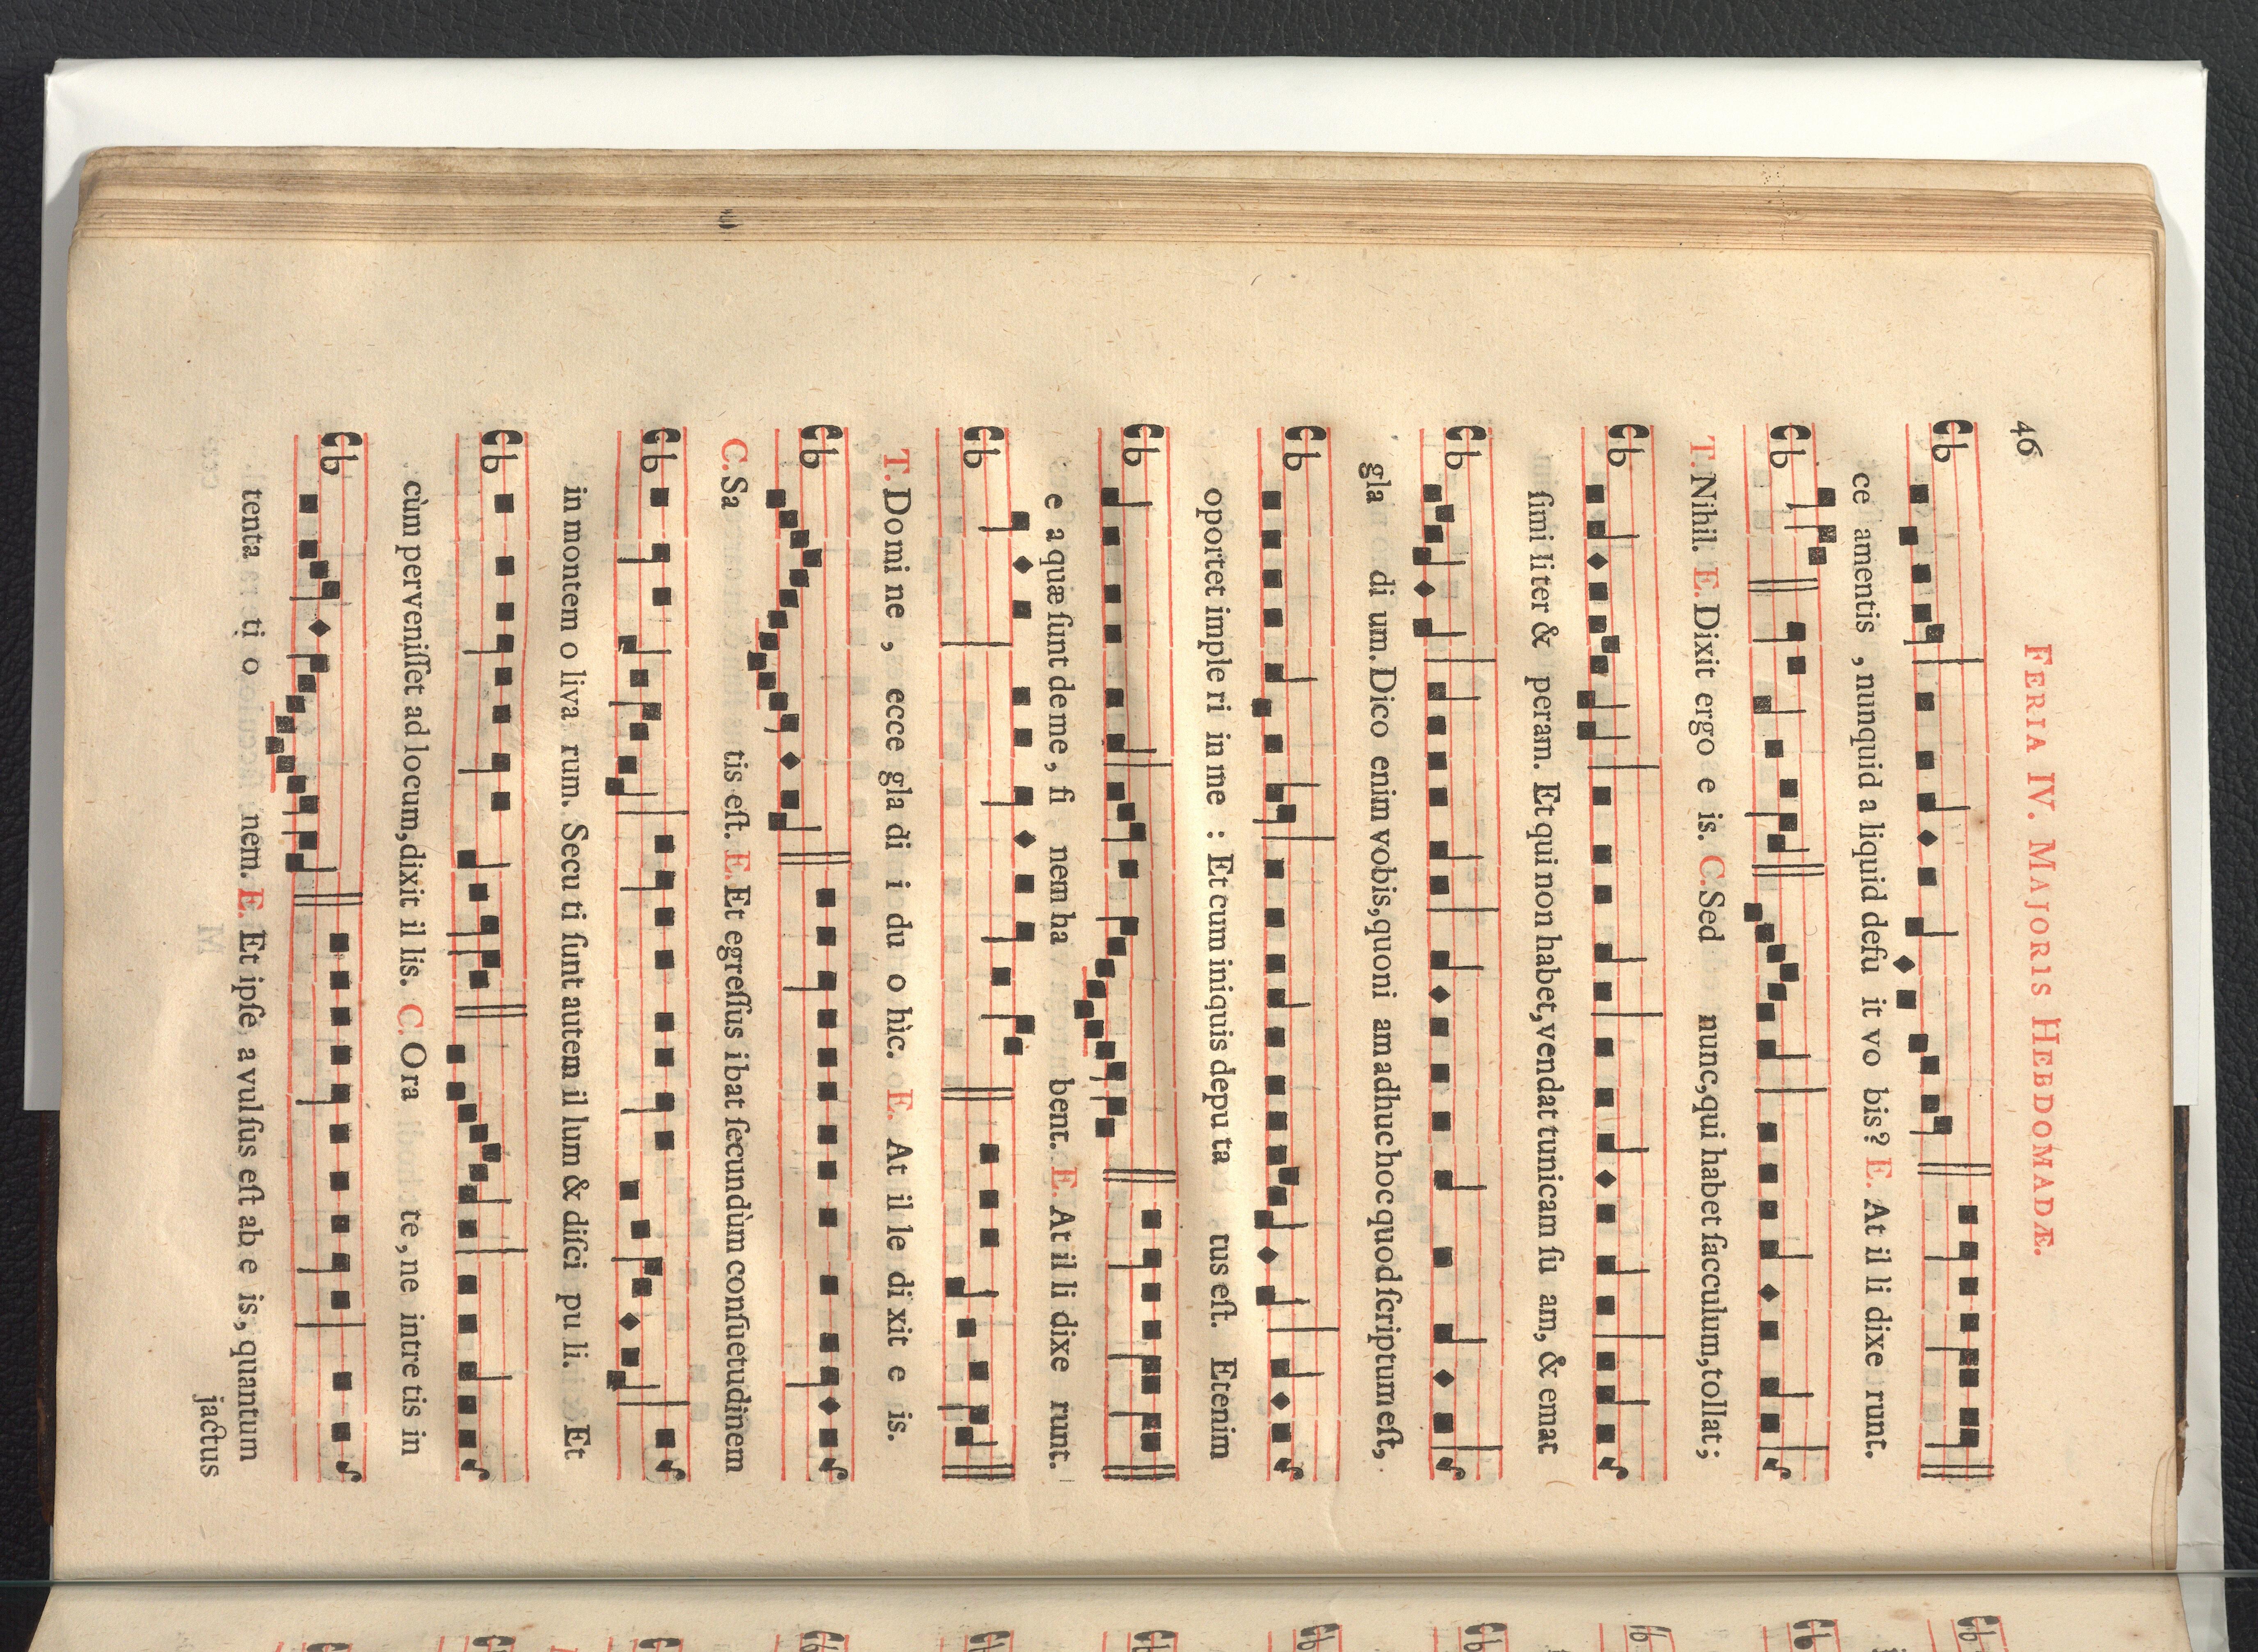 46
FERIA IV. MAJORIS HEBDOMADÆ.
ce amentis , nunquid a liquid defu it vo bis? E. At il li dixe runt.
T. Nihil. E. Dixit ergo e is. C. Sed nunc, qui habet ſacculum, tollat;
ſimi li ter & peram. Et qui non habet, vendat tunicam ſu am, & emat
gla di um. Dico enim vobis, quoni am adhuc hoc quod ſcriptum eſt,
oportet imple ri in me : Et cum iniquis depu ta tus eſt. Etenim
e a quæ ſunt de me, fi nem ha bent. E. At il li dixe runt.
T. Domi ne , ecce gla di i du o hìc. E. At il le di xit e is.
C. Sa tis eſt. E. Et egreſſus ibat ſecundùm conſuetudinem
in montem o liva rum. Secu ti ſunt autem il lum & diſci pu li. Et
cùm perveniſſet ad locum, dixit il lis. C. Ora te, ne intre tis in
tenta ti o nem. E. Et ipſe a vulſus eſt ab e is, quantum
jactus